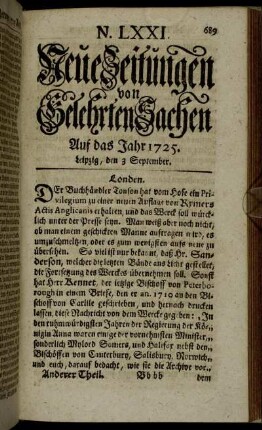 N. LXXI.
689
Neue Zeitungen
von
Gelehrten Sachen
Auf das Jahr 1725.
Leipzig, den 3 September.
Londen.
DEr Buchhändler Tonson hat vom Hofe ein Pri-
vilegium zu einer neuen Auflage von Rymers
Actis Anglicanis erhalten, und das Werck soll würck-
lich unter der Presse seyn. Man weiß aber noch nicht,
ob man einem geschickten Manne auftragen wird, es
umzuschmeltzen, oder es zum wenigsten aufs neue zu
übersehen. So viel ist nur bekant, daß Hr. San-
derson, welcher die letzten Bände ans Licht gestellet,
die Fortsetzung des Werckes übernehmen soll. Sonst
hat Herr Kennet, der jetzige Bischoff von Peterbo-
rough in einem Briefe, den er an. 1710 an den Bi-
schoff von Carlile geschrieben, und hernach drucken
lassen, diese Nachricht von dem Werck gegeben: „In
den ruhmwürdigsten Jahren der Regierung der Kö-
nigin Anna waren einige der vornehmsten Minister,
sonderlich Mylord Somers, und Halifax nebst den
Bischöffen von Canterbury, Salisbury, Norwich
und euch, darauf bedacht, wie sie die Archive vor
Anderer Theil. Bb bb dem